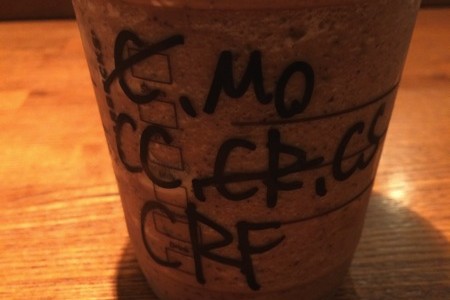 C.MO
CC.CR.CS
CRF